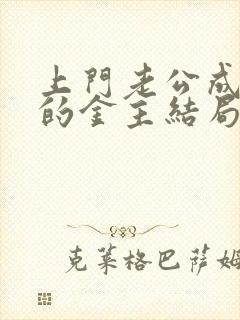 上門老公成
的金主結局
克萊格巴薩姆